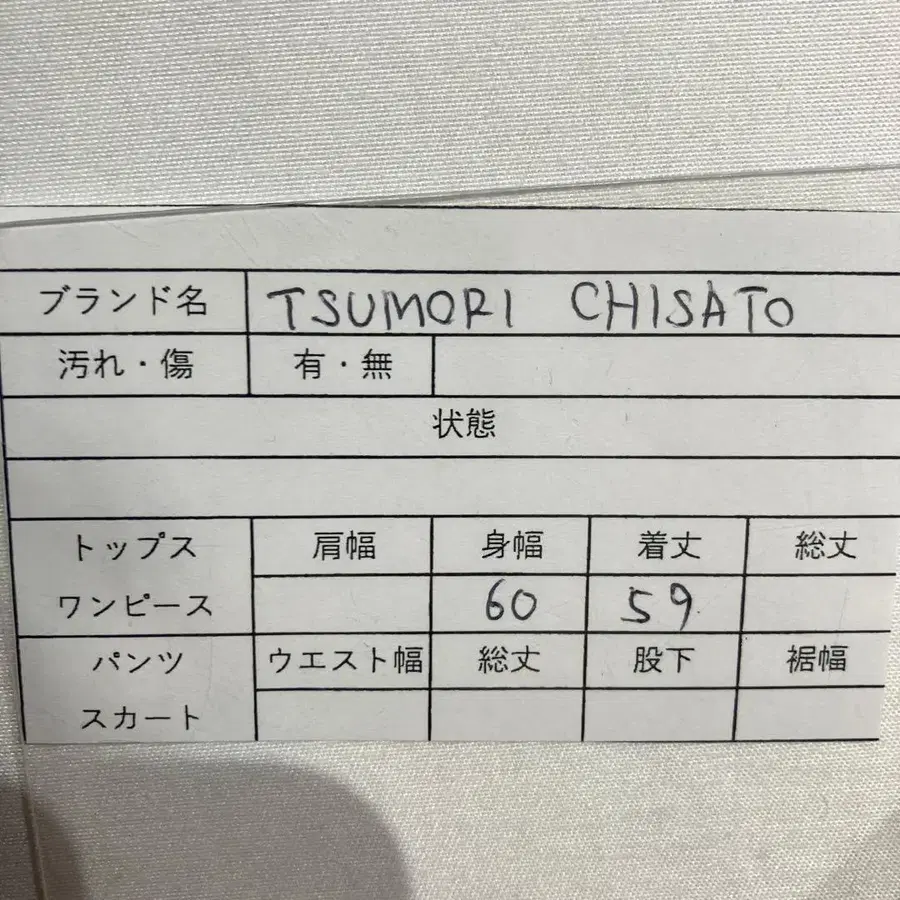 ブランド名 TSUMORI CHISATO
汚れ・傷 有・無
状態
トップス 肩幅 身幅 着丈 総丈
ワンピース 60 59
パンツ ウエスト幅 総丈 股下 裾幅
スカート